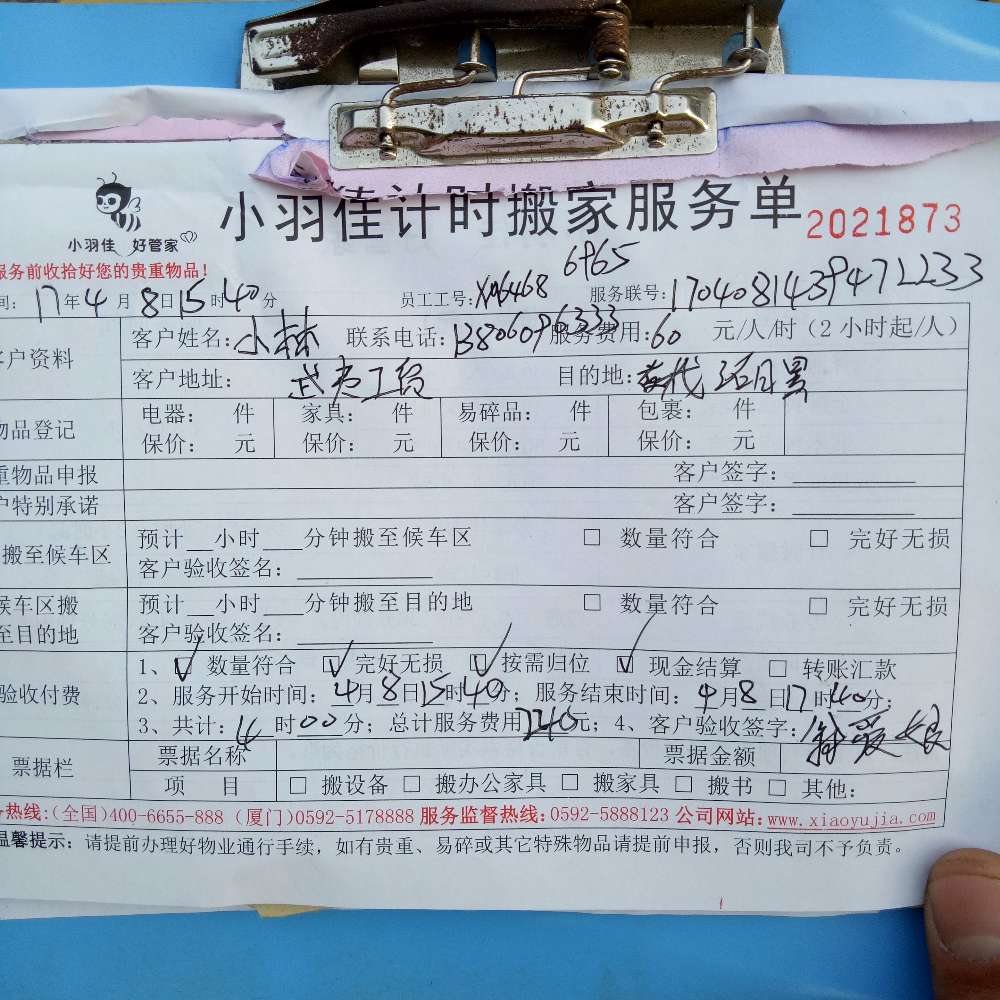 小羽佳计时搬家服务单 2021873
小羽佳 好管家
服务前收拾好您的贵重物品！
6965
间：17年4月8日15时40分 员工工号：XM6468 服务联号：1704081439471233
客户资料
客户姓名：小林 联系电话：13806096333 服务费用：60 元/人/时（2小时起/人）
客户地址： 目的地：
物品登记
电器： 件 家具： 件 易碎品： 件 包裹： 件
保价： 元 保价： 元 保价： 元 保价： 元
重物品申报 客户签字：
户特别承诺 客户签字：
搬至候车区
预计__小时___分钟搬至候车区 □ 数量符合 □ 完好无损
客户验收签名：
候车区搬至目的地
预计__小时___分钟搬至目的地 □ 数量符合 □ 完好无损
客户验收签名：
验收付费
1、☑ 数量符合 ☑ 完好无损 ☑ 按需归位 ☑ 现金结算 □ 转账汇款
2、服务开始时间：4月8日15时40分；服务结束时间：4月8日17时40分；
3、共计：4时00分；总计服务费用240元；4、客户验收签字：
票据栏
票据名称 票据金额
项 目 □ 搬设备 □ 搬办公家具 □ 搬家具 □ 搬书 □ 其他：
热线：(全国)400-6655-888 (厦门)0592-5178888 服务监督热线：0592-5888123 公司网站：www.xiaoyujia.com
温馨提示：请提前办理好物业通行手续，如有贵重、易碎或其它特殊物品请提前申报，否则我司不予负责。